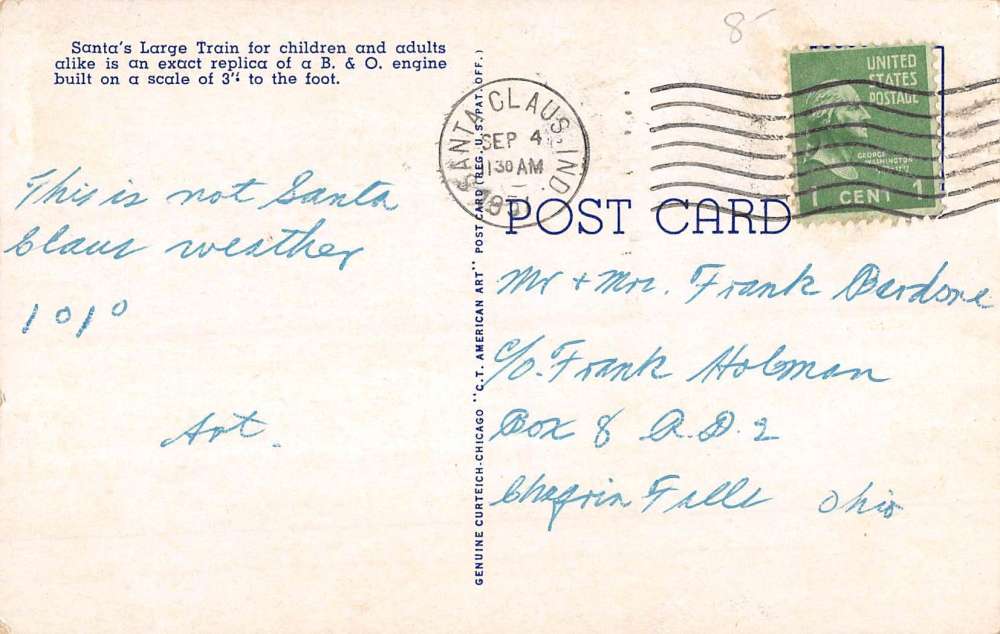 8-
Santa's Large Train for children and adults
alike is an exact replica of a B. & O. engine
built on a scale of 3" to the foot.
This is not Santa
Claus weather
101°
Art.
GENUINE CURTEICH-CHICAGO "C.T. AMERICAN ART" POST CARD (REG. U.S. PAT. OFF.)
SANTA CLAUS, IND.
SEP 4
130 AM
UNITED
STATES
POSTAGE
GEORGE
WASHINGTON
1 CENT 1
POST CARD
Mr + Mrs. Frank Bardone
c/o. Frank Holman
Box 8 R.D. 2
Chagrin Falls Ohio